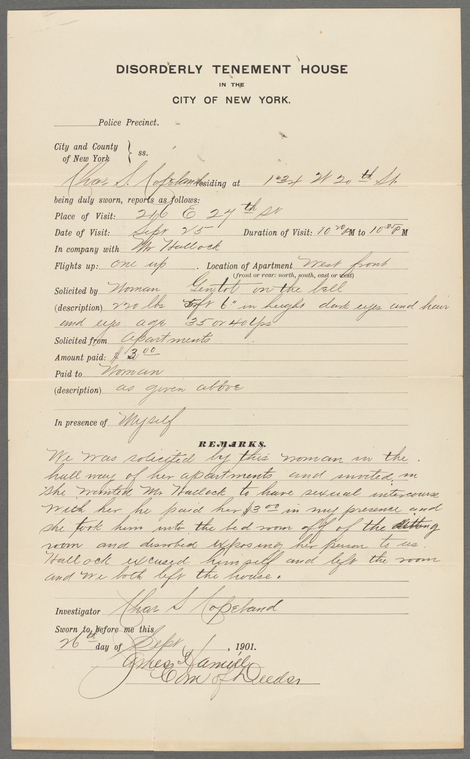 DISORDERLY TENEMENT HOUSE
IN THE
CITY OF NEW YORK.
Police Precinct.
City and County
of New York } ss.
Chas S. Copeland residing at 134 W 20th St
being duly sworn, reports as follows:
Place of Visit: 216 E 27th St
Date of Visit: Sept 25 Duration of Visit: 10 PM to 10 PM
In company with Mr Hallock
Flights up: One up Location of Apartment West front
(front or rear: north, south, east or west)
Solicited by Woman on the bell
(description) 220 lbs 5 ft 6" in height dark eyes and hair
age 35 or 40 yrs
Solicited from Apartments
Amount paid: $3.00
Paid to Woman
(description) as given above
In presence of Myself
REMARKS.
We was solicited by this woman in the
hall way of her apartments and invited in
She wanted Mr Hallock to have sexual intercourse
with her he paid her $3.00 in my presence and
she took him into the bed room off of the sitting
room and disrobed exposing her person to us.
Hallock excused himself and left the room
and we both left the house.
Investigator Chas S Copeland
Sworn to before me this
26th day of Sept, 1901.
James Hamill
Com of Deeds